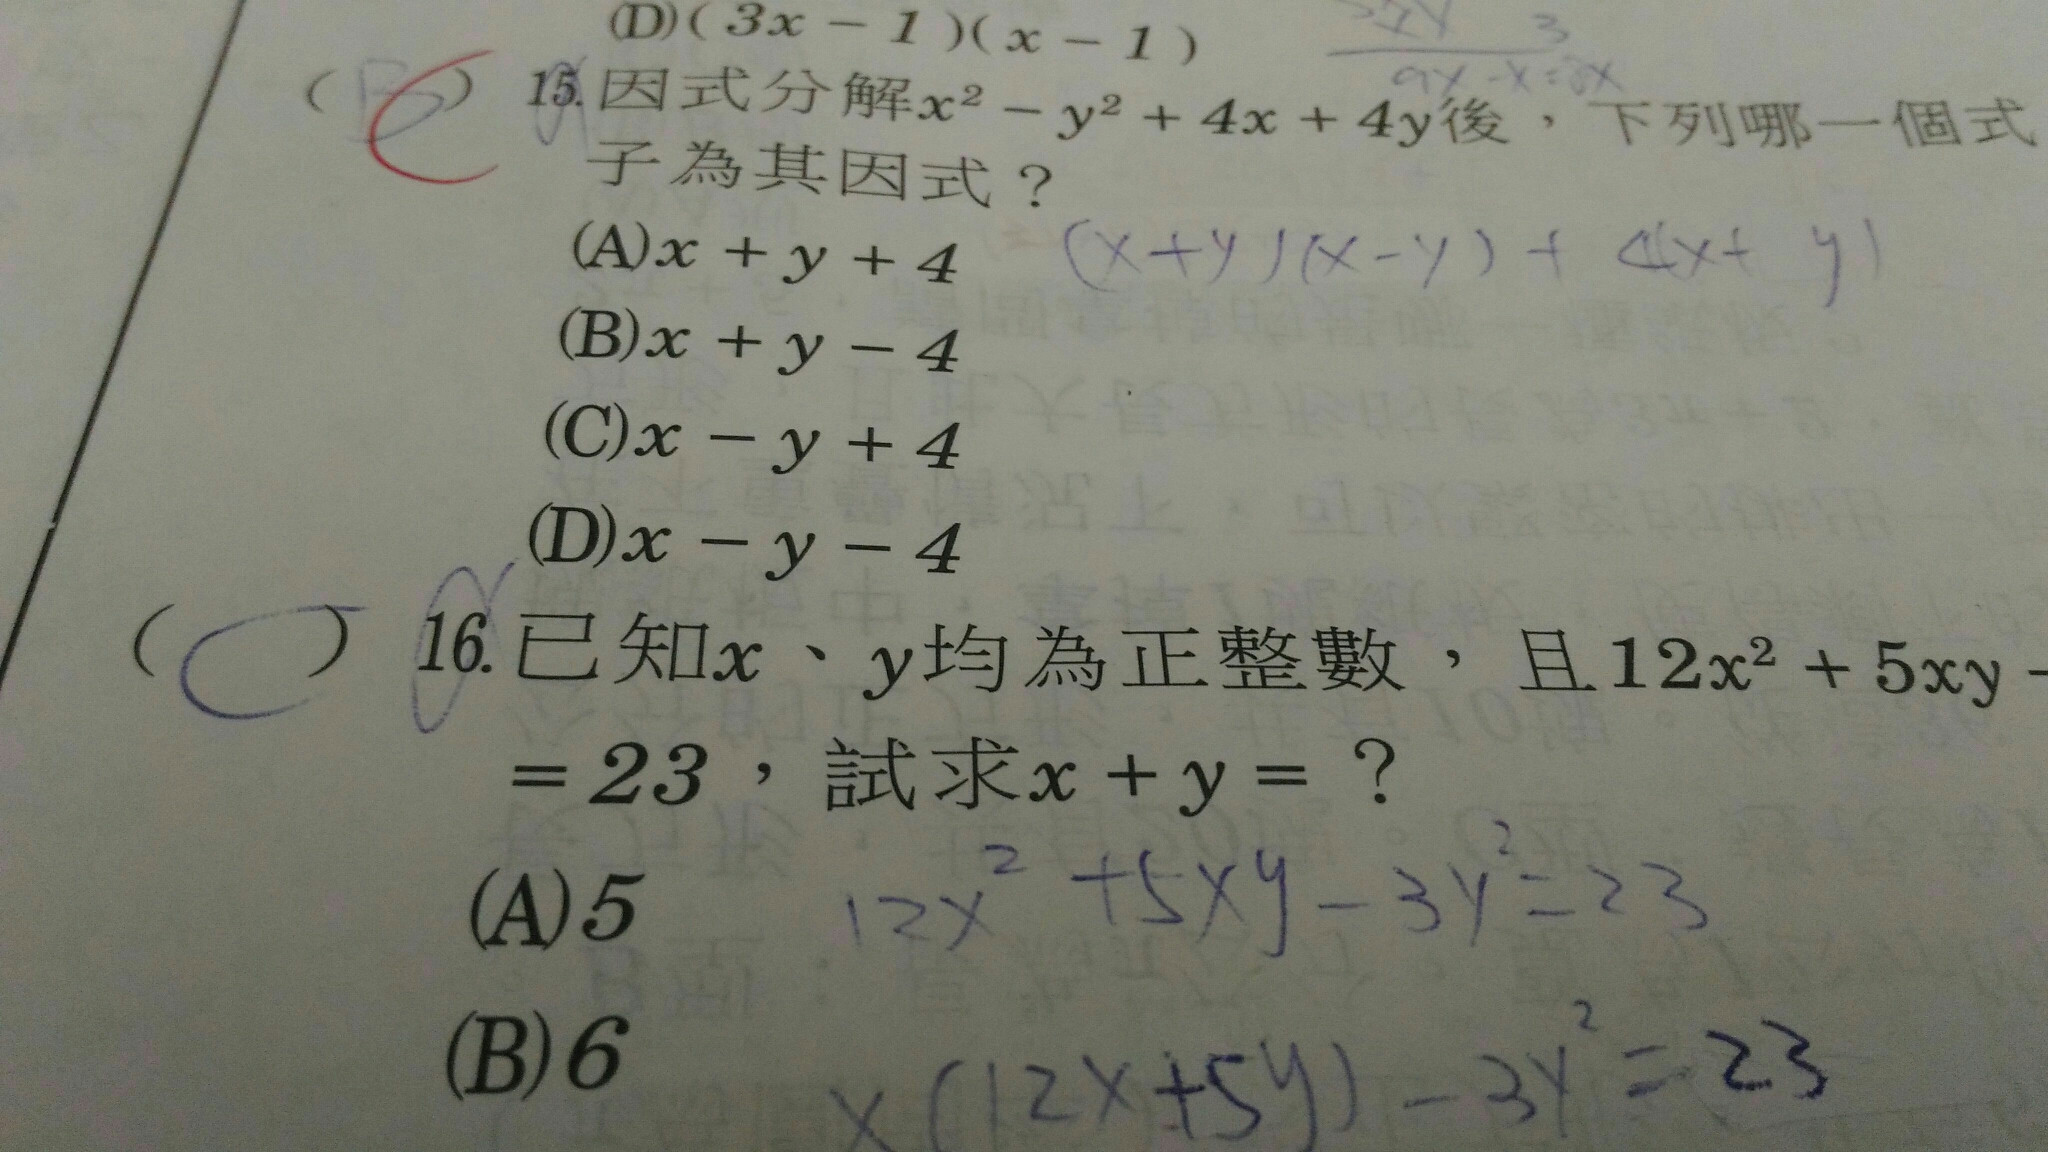 (D)(3x－1)(x－1)
3
9x-x=8x
( B ) 15. 因式分解x²－y²＋4x＋4y後，下列哪一個式
子為其因式？
(A)x＋y＋4
(x+y)(x-y)+4(x+ y)
(B)x＋y－4
(C)x－y＋4
(D)x－y－4
( C ) 16. 已知x、y均為正整數，且12x²＋5xy－
＝23，試求x＋y＝？
(A)5
12x²+5xy-3y²=23
(B)6
x(12x+5y)-3y²=23